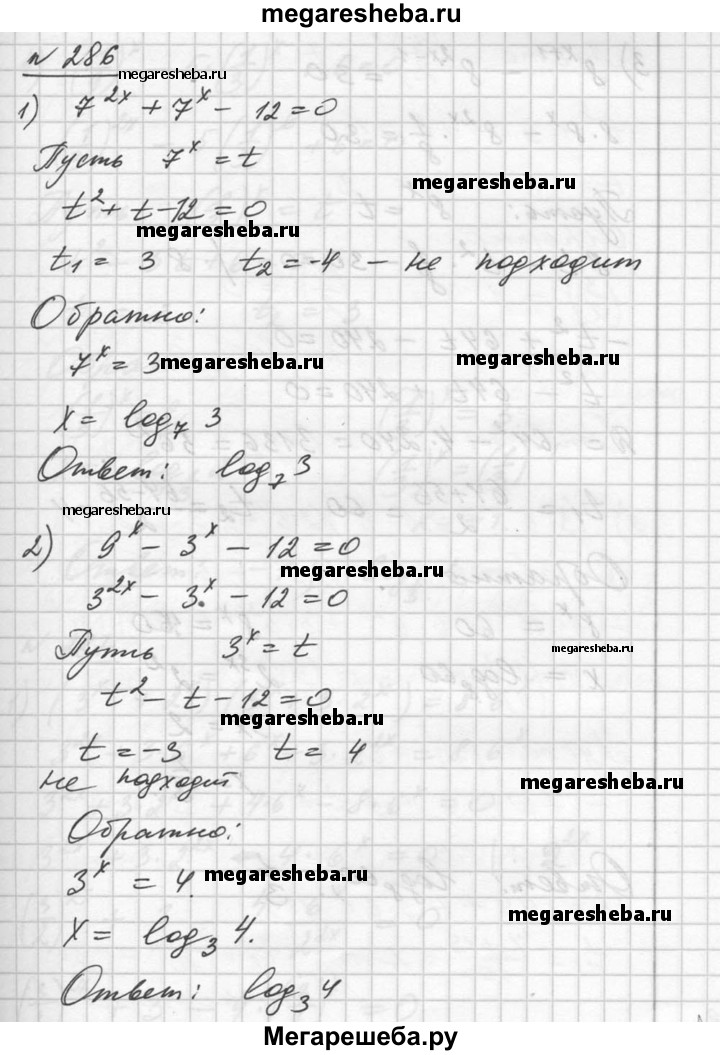 megaresheba.ru
n 286
megaresheba.ru
1) 7^2x + 7^x - 12 = 0
Пусть 7^x = t
megaresheba.ru
t^2 + t - 12 = 0
megaresheba.ru
t1 = 3 t2 = -4 - не подходит
Обратно:
7^x = 3
megaresheba.ru
megaresheba.ru
x = log7 3
Ответ: log7 3
megaresheba.ru
2) 9^x - 3^x - 12 = 0
megaresheba.ru
3^2x - 3^x - 12 = 0
Путь 3^x = t
megaresheba.ru
t^2 - t - 12 = 0
megaresheba.ru
t = -3 t = 4
не подходит
megaresheba.ru
Обратно:
3^x = 4.
megaresheba.ru
megaresheba.ru
x = log3 4.
Ответ: log3 4
Мегарешеба.ру